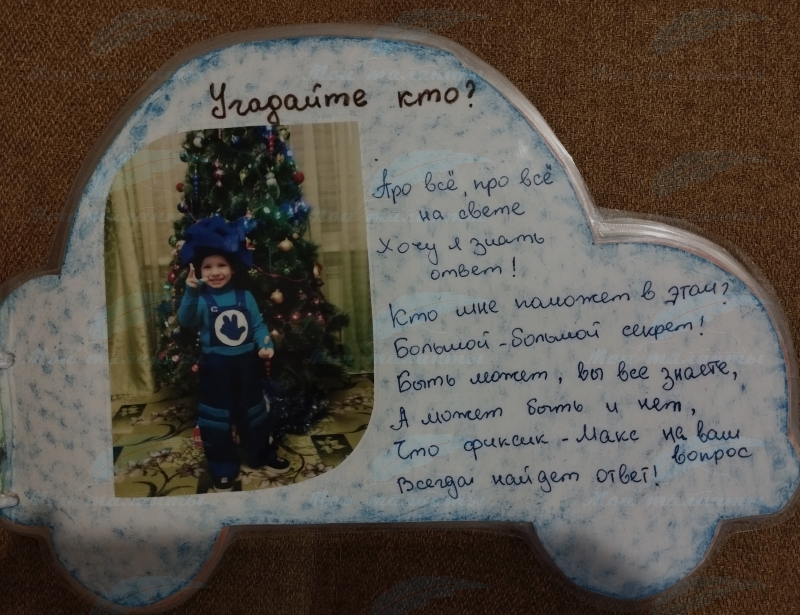 Угадайте кто?
Про всё, про всё
на свете
Хочу я знать
ответ!
Кто мне поможет в этом?
Большой-большой секрет!
Быть может, вы все знаете,
А может быть и нет,
Что фиксик - Макс на ваш
вопрос
Всегда найдет ответ!